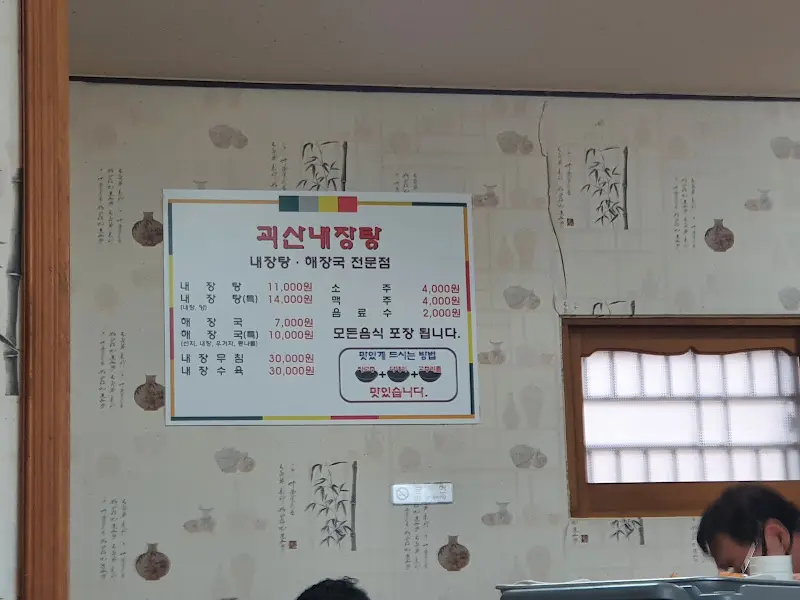 괴산내장탕
내장탕 · 해장국 전문점
내 장 탕 11,000원
내 장 탕(특) 14,000원
해 장 국 7,000원
해 장 국(특) 10,000원
(선지, 내장, 우거지, 콩나물)
내 장 무 침 30,000원
내 장 수 육 30,000원
소 주 4,000원
맥 주 4,000원
음 료 수 2,000원
모든음식 포장 됩니다.
맛있게 드시는 방법
맛있습니다.